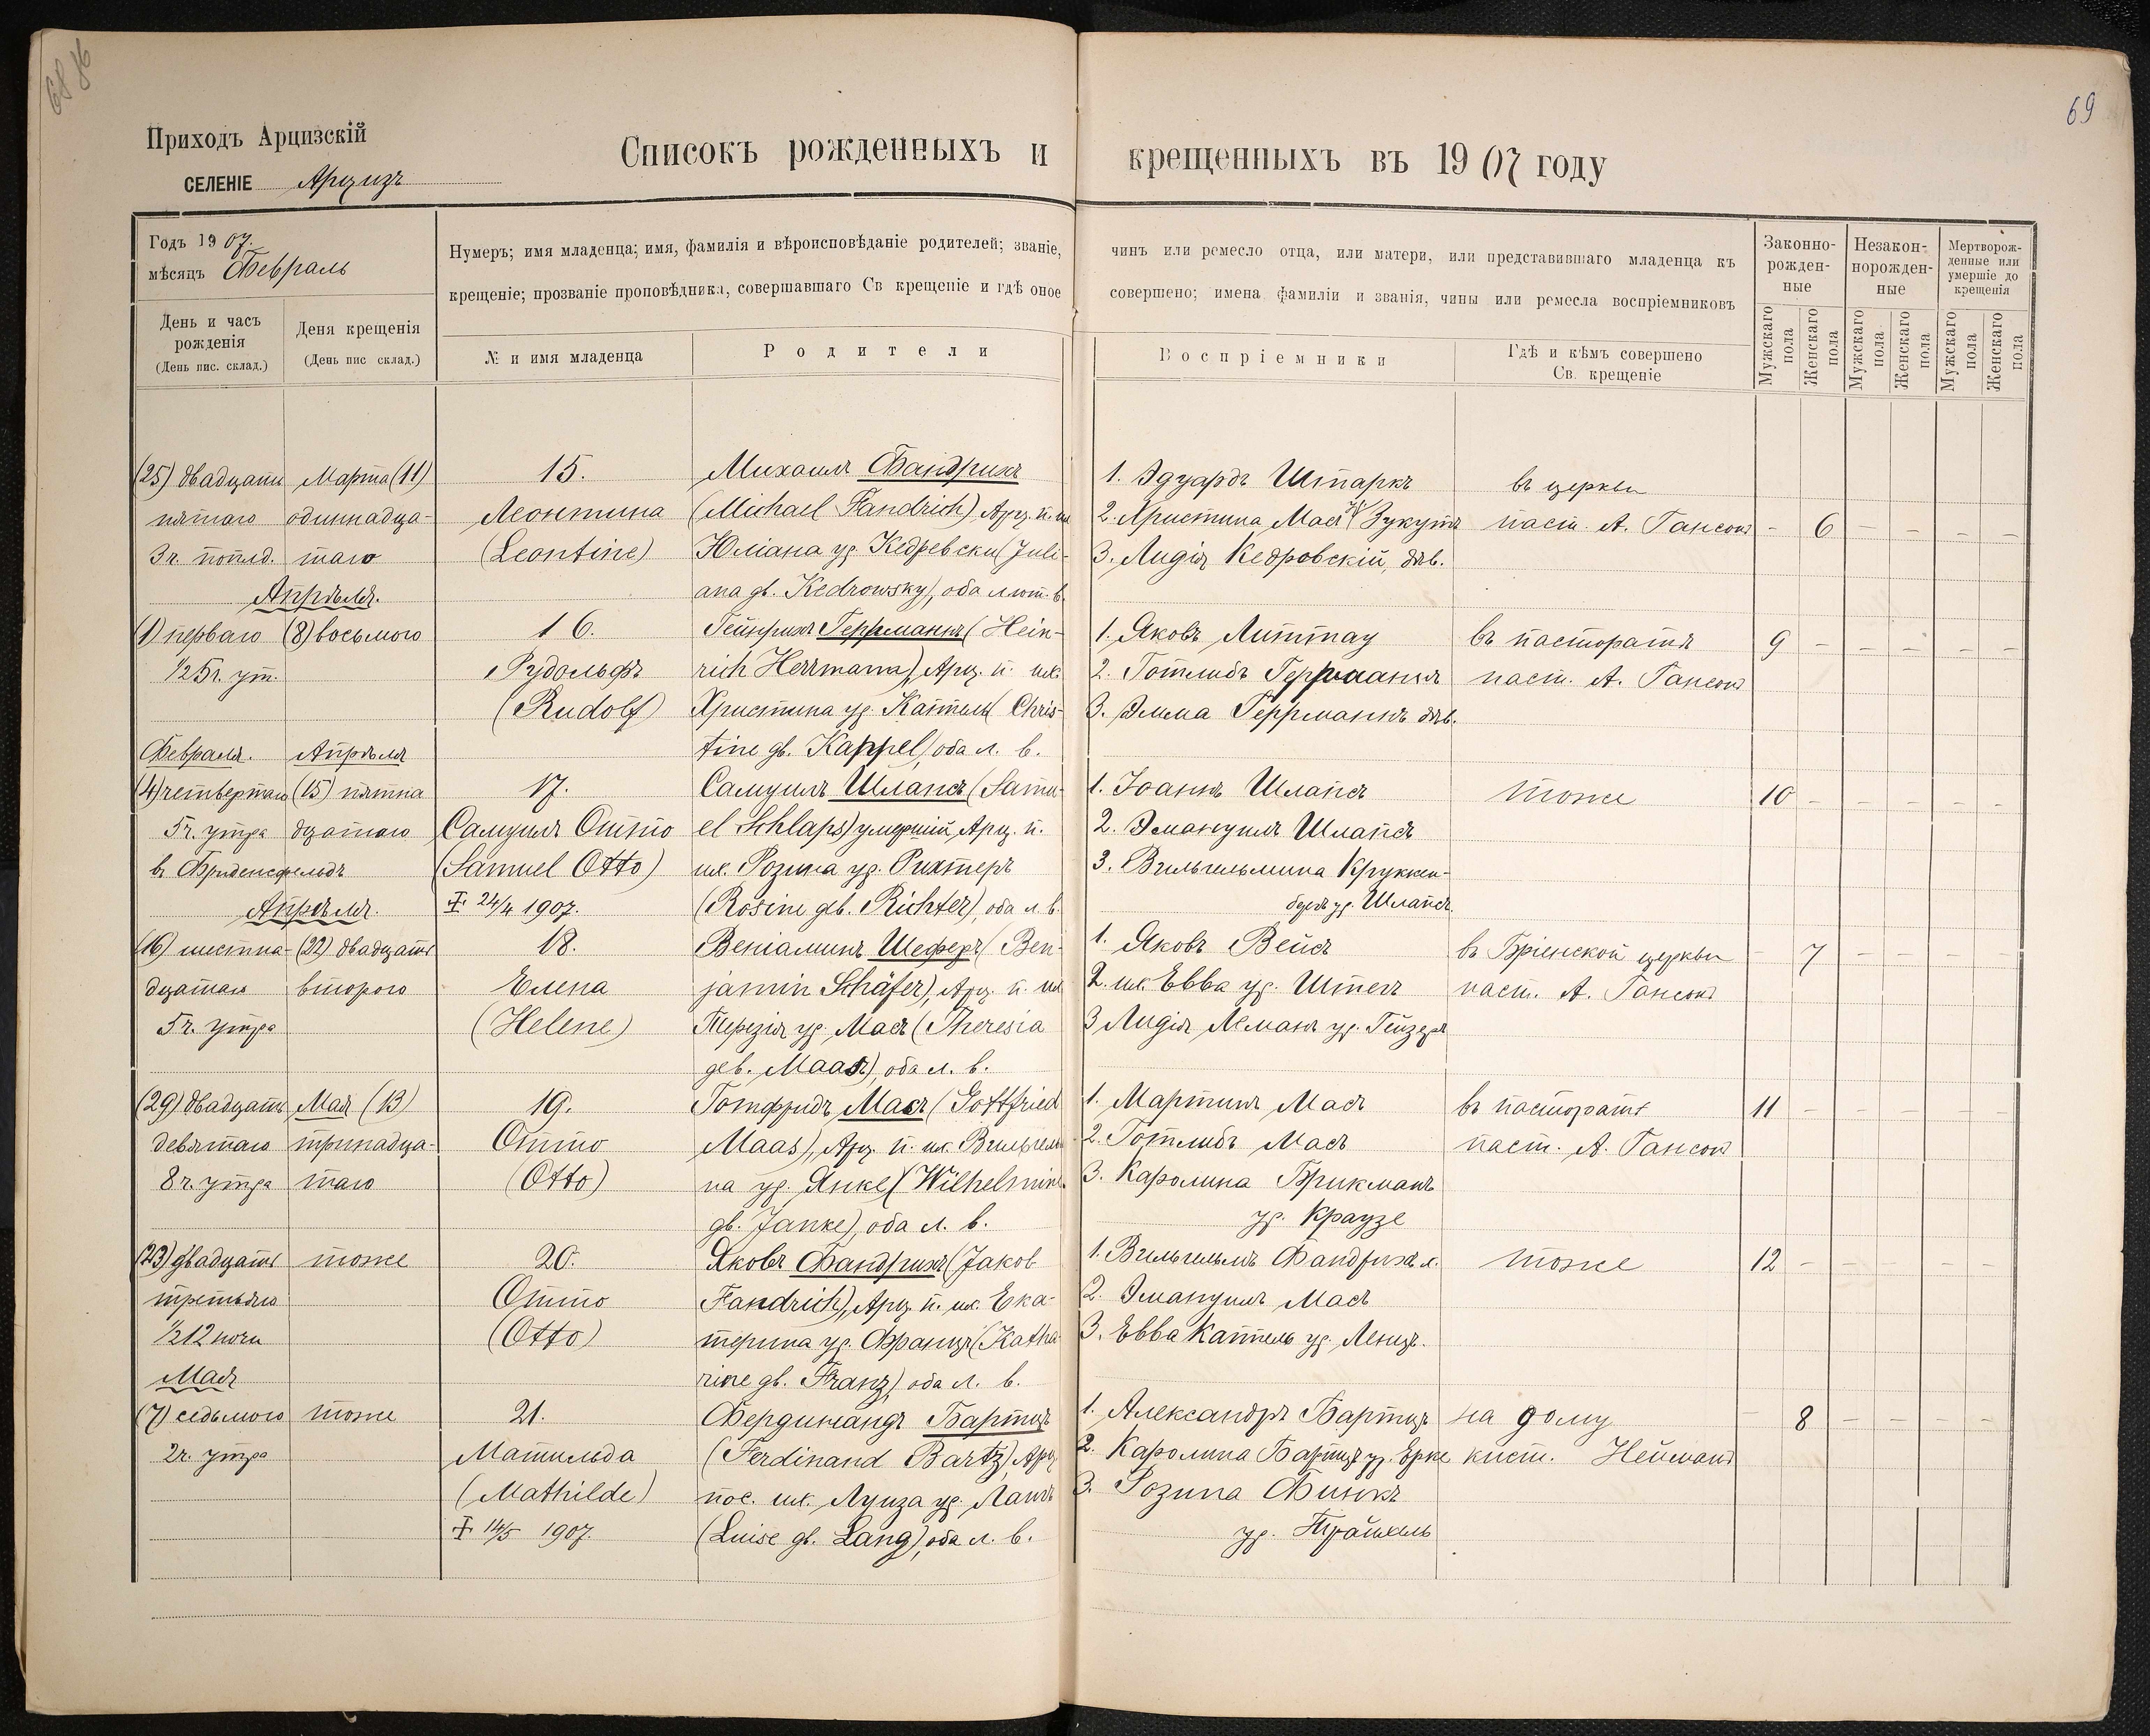 68 86
69
Приходъ Арцизскій
СЕЛЕНІЕ Арцизъ
Списокъ рожденныхъ и крещенныхъ въ 1907 году
Годъ 1907.
мѣсяцъ Февраль
Нумеръ; имя младенца; имя, фамилія и вѣроисповѣданіе родителей; званіе, чинъ или ремесло отца, или матери, или представившаго младенца къ
крещеніе; прозваніе проповѣдника, совершавшаго Св крещеніе и гдѣ оное совершено; имена фамиліи и званія, чины или ремесла воспріемниковъ
Законно-
рожден-
ные
Незакон-
норожден-
ные
Мертворож-
денные или
умершіе до
крещенія
День и часъ
рожденія
(День пис. склад.)
Деня крещенія
(День пис склад.)
№ и имя младенца
Родители
Воспріемники
Гдѣ и кѣмъ совершено
Св. крещеніе
Мужскаго пола
Женскаго пола
Мужскаго пола
Женскаго пола
Мужскаго пола
Женскаго пола
(25) двадцать
пятаго
3ч. попнд.
Марта (11)
одиннадца-
таго
15.
Леонтина
(Leontine)
Михаилъ Фандрихъ
(Michael Fandrich), Арц. п. ж.
Юліана ур. Кедревски (Juli-
ana gb. Kedrowsky), оба лют. в.
1. Эдуардъ Штаркъ
2. Христина Масъ Зукутъ
3. Лидія Кедровскій, дѣв.
въ церкви
паст. А. Гансонъ
- 6 - - - -
Апрѣля.
(1) перваго
1/2 5ч. ут.
(8) восьмого
16.
Рудольфъ
(Rudolf)
Гейнрихъ Геррманнъ (Hein-
rich Herrmann), Арц. п. ж.
Христина ур. Каппель (Chris-
tine gb. Kappel), оба л. в.
1. Яковъ Литтау
2. Готлибъ Геррманнъ
3. Эмма Геррманнъ дѣв.
въ пасторатѣ
паст. А. Гансонъ
9 - - - - -
Февраля.
(4) четвертаго
5ч. утра
въ Фриденсфельдѣ
Апрѣля
(15) пятна
дцатаго
17.
Самуилъ Отто
(Samuel Otto)
24/4 1907.
Самуилъ Шлапсъ (Samu-
el Schlaps) умерший, Арц. п.
ж. Розина ур. Рихтеръ
(Rosine geb. Richter), оба л. в.
1. Іоаннъ Шлапсъ
2. Эмануилъ Шлапсъ
3. Вильгельмина Круккен-
бергъ ур. Шлапсъ.
тоже
10 - - - - -
Апрѣля.
(16) шестна-
дцатаго
5ч. утра
(22) двадцать
второго
18.
Елена
(Helene)
Веніаминъ Шеферъ (Ben-
jamin Schäfer), Арц. п. ж.
Терезія ур. Масъ (Theresia
geb. Maas) оба л. в.
1. Яковъ Вейсъ
2. ж. Евва ур. Штегъ
3 Лидія Леманъ ур. Гейзеръ
въ Бріенской церкви
паст. А. Гансонъ
- 7 - - - -
(29) двадцать
девятаго
8ч. утра
Мая (13)
тринадца-
таго
19.
Отто
(Otto)
Готфридъ Масъ (Gottfried
Maas), Арц. п. ж. Вильгельми
на ур. Янке (Wilhelmine
gb. Janke), оба л. в.
1. Мартинъ Масъ
2. Готлибъ Масъ
3. Каролина Брикманъ
ур. Краузе
въ пасторатѣ
паст. А. Гансонъ
11 - - - - -
(23) двадцать
третьяго
1/2 12 ночи
тоже
20.
Отто
(Otto)
Яковъ Фандрихъ (Jakob
Fandrich), Арц. п. ж. Ека-
терина ур. Францъ (Katha
rine gb. Franz) оба л. в.
1. Вильгельмъ Фандрихъ х.
2. Эмануилъ Масъ
3. Евва Каппель ур. Ленцъ.
тоже
12 - - - - -
Мая
(7) седьмого
2ч. утра
тоже
21.
Матильда
(Mathilde)
14/5 1907.
Фердинандъ Бартцъ
(Ferdinand Bartz), Арц
пос. ж. Луиза ур. Лангъ
(Luise gb. Lang), оба л. в.
1. Александръ Бартцъ
2. Каролина Бартцъ ур. Ерке
3. Розина Финкъ
ур. Трашкель
на дому
кист. Нейманъ
- 8 - - - -